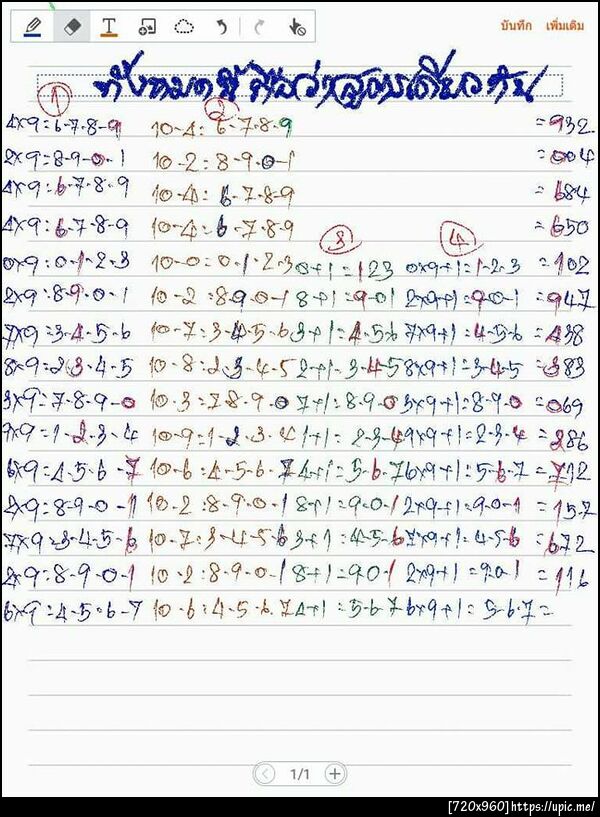 บันทึก เพิ่มเติม
ทั้งหมดนี้ถือว่าสูตรเดียวกัน
1 2
4×9=6-7-8-9 10-4=6-7-8-9 =932
2×9=8-9-0-1 10-2=8-9-0-1 =004
4×9=6-7-8-9 10-4=6-7-8-9 =684
4×9=6-7-8-9 10-4=6-7-8-9 =650
3 4
0×9=0-1-2-3 10-0=0-1-2-3 0+1=123 0×9+1=1-2-3 =102
2×9=8-9-0-1 10-2=8-9-0-1 8+1=9-01 2×9+1=9-0-1 =947
7×9=3-4-5-6 10-7=3-4-5-6 3+1=4-5-6 7×9+1=4-5-6 =438
8×9=2-3-4-5 10-8=2-3-4-5 2+1=3-4-5 8×9+1=3-4-5 =383
3×9=7-8-9-0 10-3=7-8-9-0 7+1=8-9-0 3×9+1=8-9-0 =069
9×9=1-2-3-4 10-9=1-2-3-4 1+1=2-3-4 9×9+1=2-3-4 =286
6×9=4-5-6-7 10-6=4-5-6-7 4+1=5-6-7 6×9+1=5-6-7 =712
2×9=8-9-0-1 10-2=8-9-0-1 8+1=9-0-1 2×9+1=9-0-1 =157
7×9=3-4-5-6 10-7=3-4-5-6 3+1=4-5-6 7×9+1=4-5-6 =672
2×9=8-9-0-1 10-2=8-9-0-1 8+1=90-1 2×9+1=90-1 =116
6×9=4-5-6-7 10-6=4-5-6-7 4+1=5-6-7 6×9+1=5-6-7=
1/1
[720x960]https://upic.me/